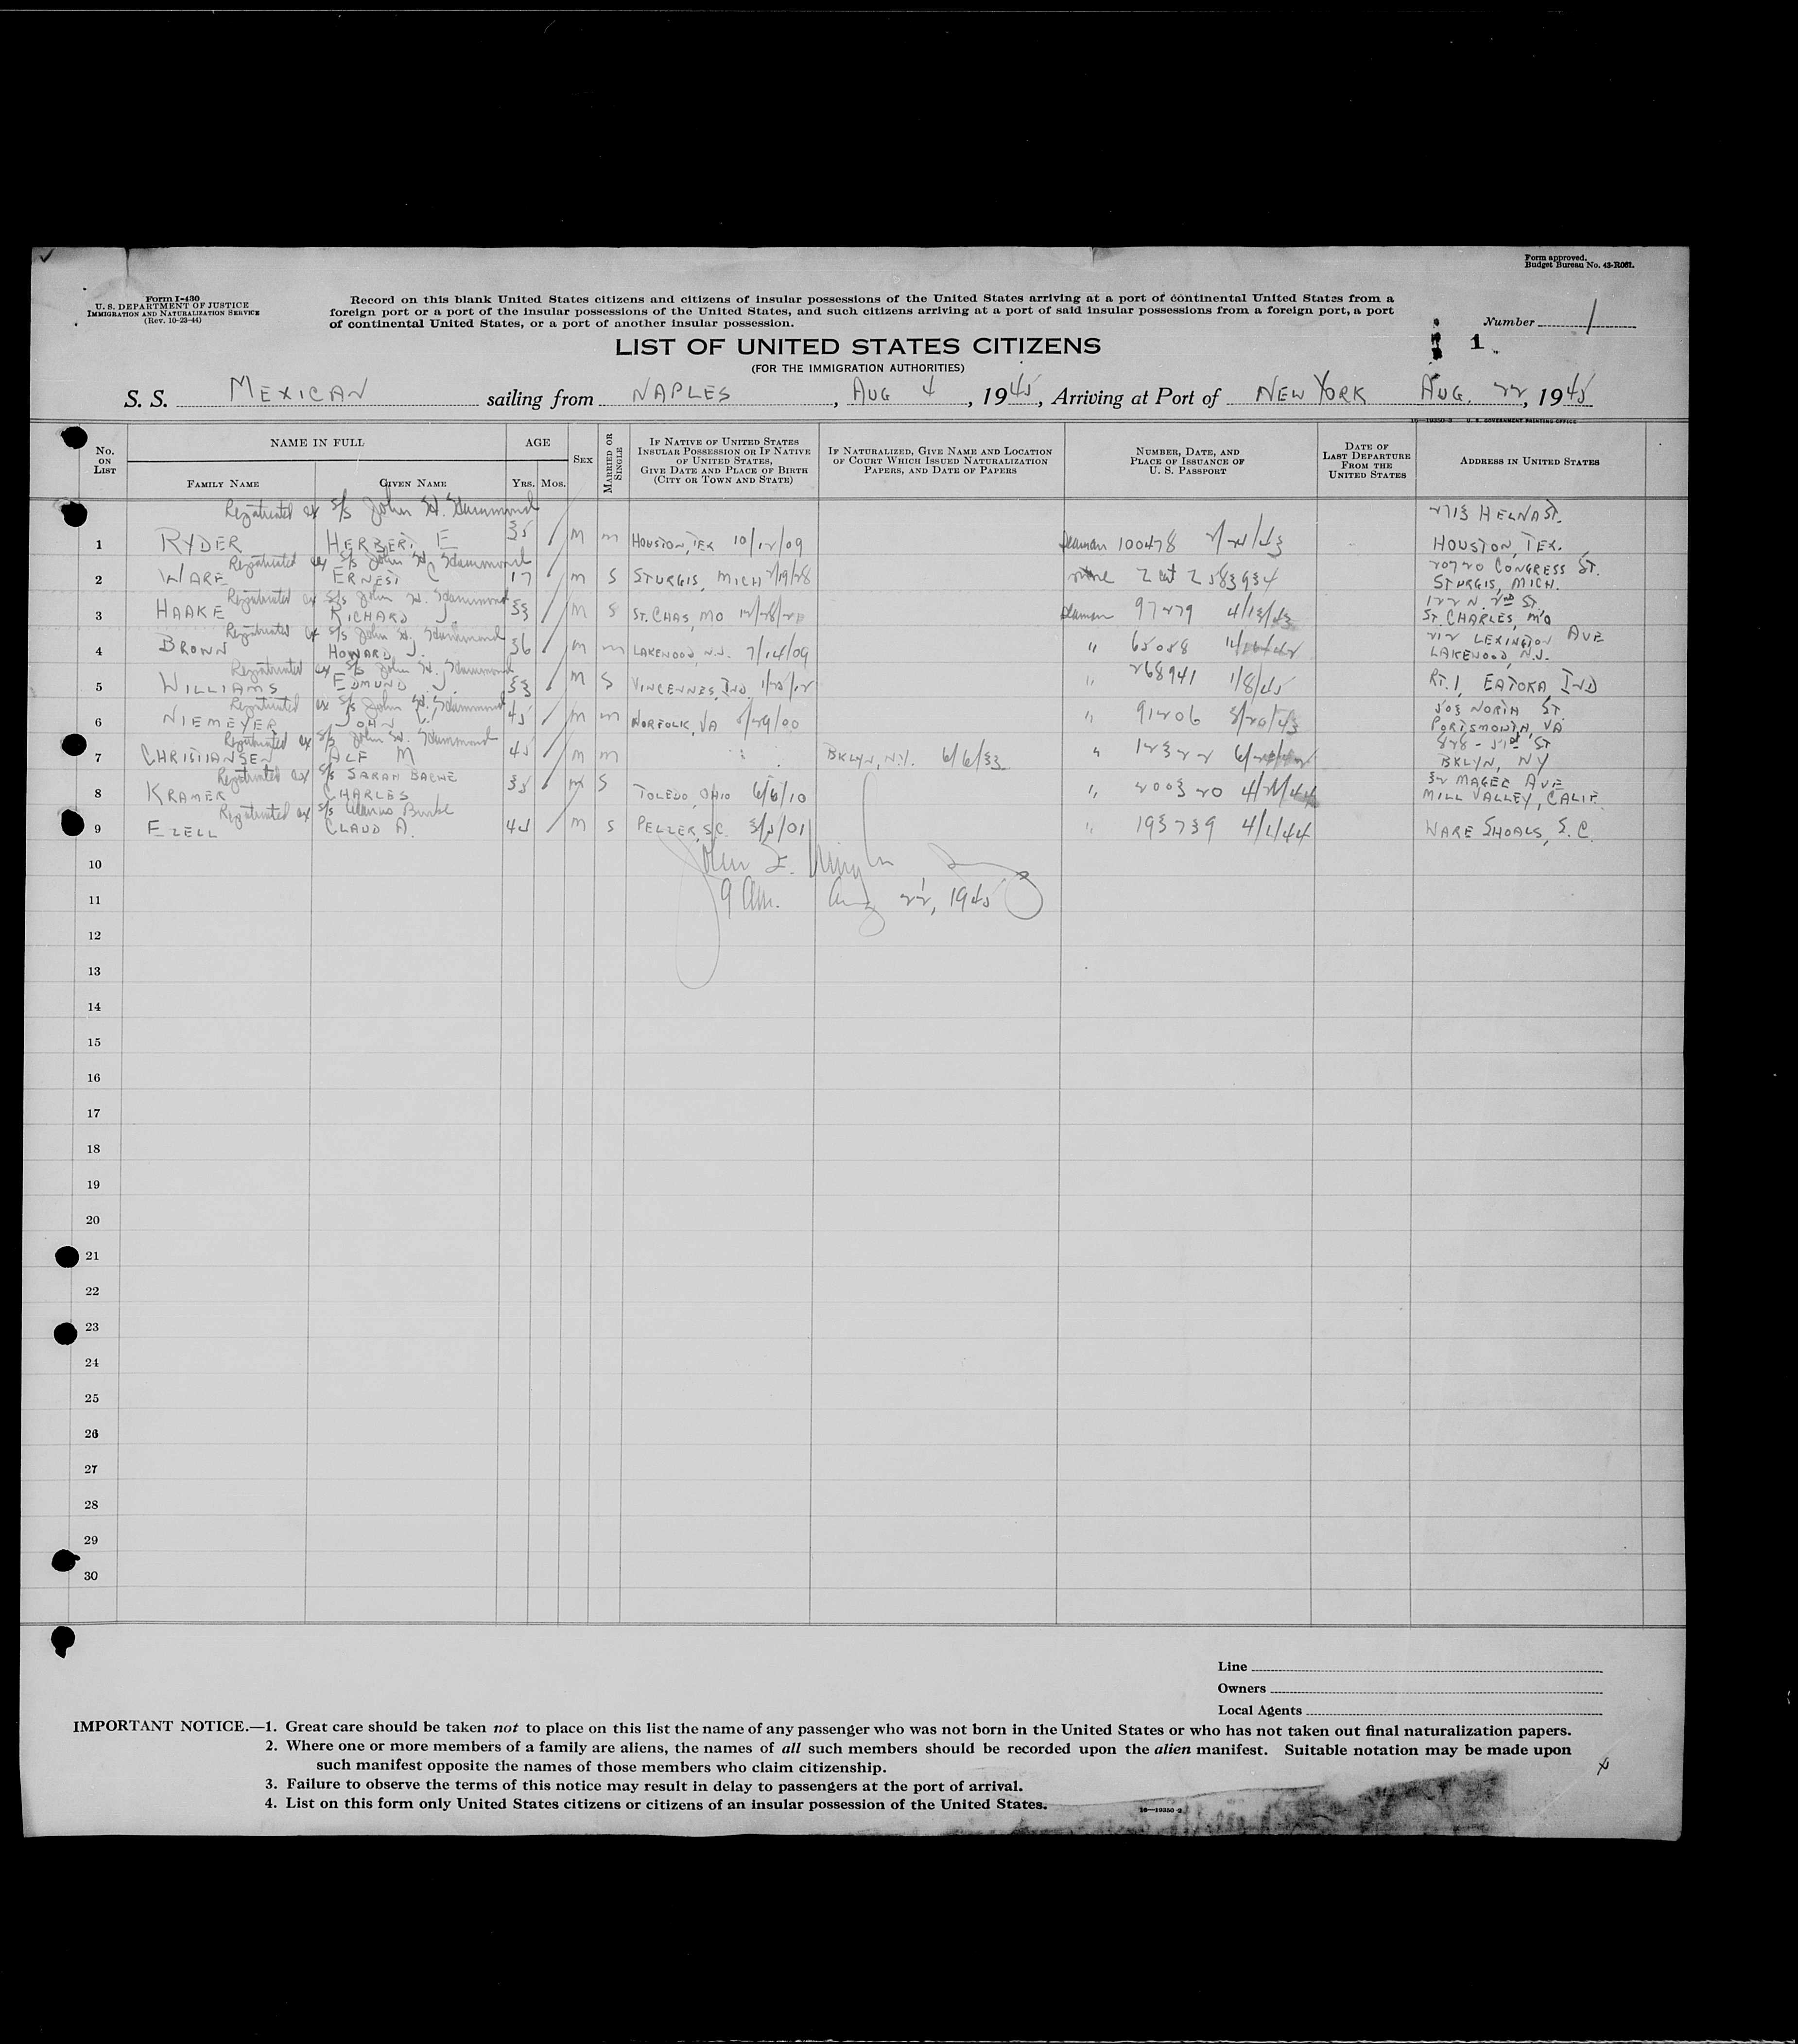 Form approved.
Budget Bureau No. 43-R061.
Form I-430
U. S. DEPARTMENT OF JUSTICE
IMMIGRATION AND NATURALIZATION SERVICE
(Rev. 10-23-44)
Record on this blank United States citizens and citizens of insular possessions of the United States arriving at a port of continental United States from a
foreign port or a port of the insular possessions of the United States, and such citizens arriving at a port of said insular possessions from a foreign port, a port
of continental United States, or a port of another insular possession.
Number 1
1
LIST OF UNITED STATES CITIZENS
(FOR THE IMMIGRATION AUTHORITIES)
S. S. MEXICAN sailing from NAPLES, AUG 4, 1945, Arriving at Port of NEW YORK AUG. 22, 1945
16—19350-2 U. S. GOVERNMENT PRINTING OFFICE
No. ON LIST
NAME IN FULL
FAMILY NAME GIVEN NAME
AGE
YRS. MOS.
SEX
MARRIED OR SINGLE
IF NATIVE OF UNITED STATES INSULAR POSSESSION OR IF NATIVE OF UNITED STATES, GIVE DATE AND PLACE OF BIRTH (CITY OR TOWN AND STATE)
IF NATURALIZED, GIVE NAME AND LOCATION OF COURT WHICH ISSUED NATURALIZATION PAPERS, AND DATE OF PAPERS
NUMBER, DATE, AND PLACE OF ISSUANCE OF U. S. PASSPORT
DATE OF LAST DEPARTURE FROM THE UNITED STATES
ADDRESS IN UNITED STATES
Repatriated ex S/S John H. Hammond 2713 HELNA ST.
1 RYDER HERBERT E 35 M m HOUSTON, TEX 10/12/09 Seaman 100478 HOUSTON, TEX.
Repatriated ex S/S John H. Hammond 20720 CONGRESS ST.
2 WARE ERNEST C 17 M S STURGIS, MICH 2/19/28 none STURGIS, MICH.
Repatriated ex S/S John H. Hammond 122 N. 2nd ST.
3 HAAKE RICHARD J. M S ST. CHAS, MO Seaman 97279 4/13/43 ST. CHARLES, MO
Repatriated ex S/S John H. Hammond 212 LEXINGTON AVE
4 BROWN HOWARD J. 36 M m LAKEWOOD, N.J. 7/14/09 " 65058 LAKEWOOD, N.J.
Repatriated ex S/S John H. Hammond
5 WILLIAMS EDMUND J. M S VINCENNES, IND. " 268941 1/8/45 RT. 1, EATOKA, IND
Repatriated ex S/S John H. Hammond 503 NORTH ST
6 NIEMEYER JOHN 45 M m NORFOLK, VA " 91206 PORTSMOUTH, VA
Repatriated ex S/S John H. Hammond 828 - 51st ST
7 CHRISTIANSEN ALF M 45 M m BKLYN, N.Y. 6/6/33 " 12322 BKLYN, NY
Repatriated ex S/S SARAH BACHE 32 MAGEE AVE
8 KRAMER CHARLES 35 M S TOLEDO, OHIO 6/6/10 " 200320 MILL VALLEY, CALIF.
Repatriated ex S/S Burke
9 EZELL CLAUD A. 44 M S PELZER, S.C. " 193739 4/1/44 WARE SHOALS, S.C.
10
9 Am. Aug 22, 1945
11
12
13
14
15
16
17
18
19
20
21
22
23
24
25
26
27
28
29
30
Line
Owners
Local Agents
IMPORTANT NOTICE.—1. Great care should be taken not to place on this list the name of any passenger who was not born in the United States or who has not taken out final naturalization papers.
2. Where one or more members of a family are aliens, the names of all such members should be recorded upon the alien manifest. Suitable notation may be made upon
such manifest opposite the names of those members who claim citizenship.
3. Failure to observe the terms of this notice may result in delay to passengers at the port of arrival.
4. List on this form only United States citizens or citizens of an insular possession of the United States.
16—19350-2